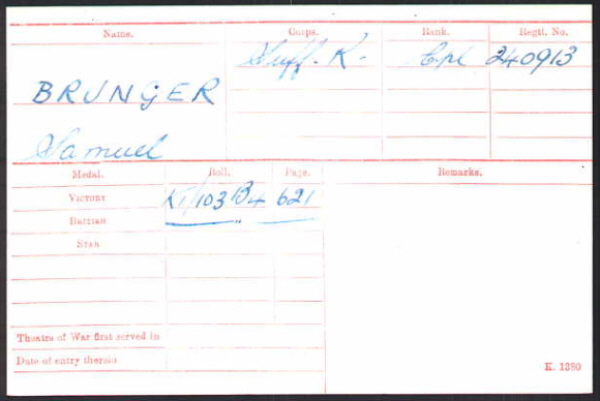 Name. Corps. Rank. Regtl. No.
BRUNGER Suff. R. Cpl 240913
Samuel
Medal. Roll. Page. Remarks.
VICTORY K1/103B4 621
BRITISH "
STAR
Theatre of War first served in
Date of entry therein
K. 1380